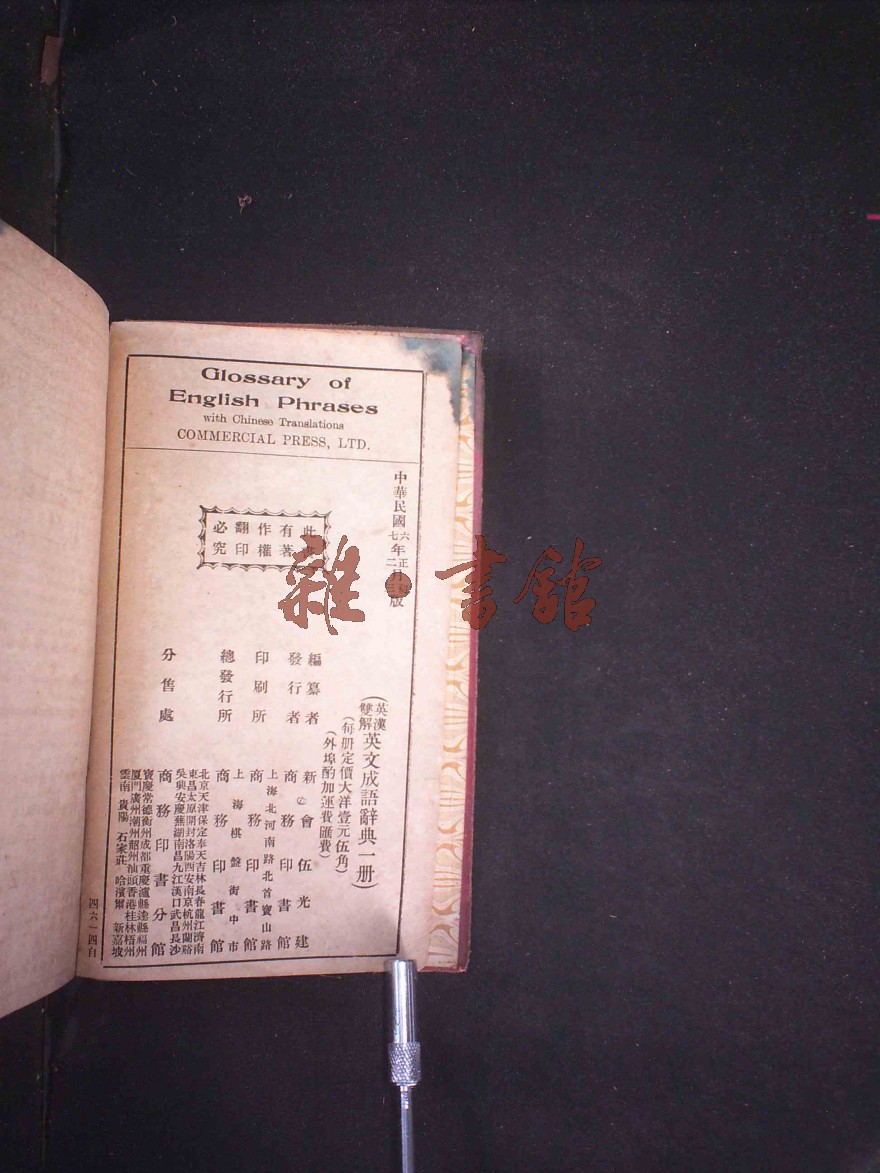 Glossary of
English Phrases
with Chinese Translations
COMMERCIAL PRESS, LTD.
中華民國六年正月初版
七年二月三版
此書有著作權翻印必究
(英漢雙解英文成語辭典一册)
(每册定價大洋壹元伍角)
(外埠酌加運費匯費)
編纂者 新會伍光建
發行者 商務印書館
上海北河南路北首寶山路
印刷所 商務印書館
上海棋盤街中市
總發行所 商務印書館
北京天津保定奉天吉林長春龍江濟南
東昌太原開封洛陽西安南京杭州蘭谿
吳興安慶蕪湖南昌九江漢口武昌長沙
分售處 商務印書分館
寶慶常德衡州成都重慶瀘縣達縣福州
厦門廣州潮州韶州汕頭香港桂林梧州
雲南 貴陽 石家莊 哈濱爾 新嘉坡
四六一四自
雜·書館